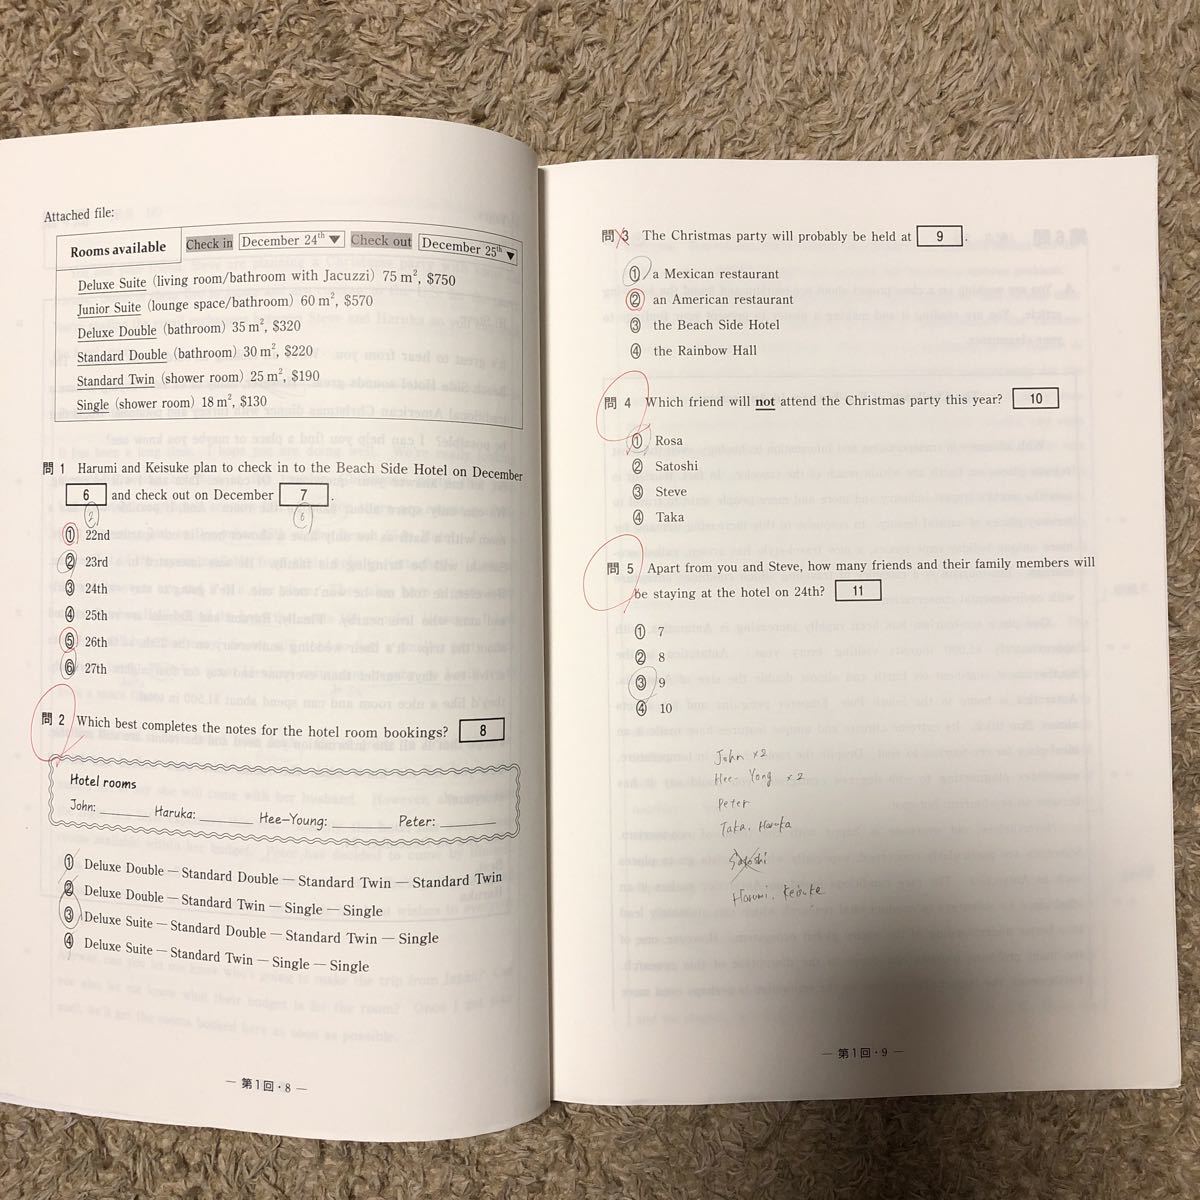 Attached file:
Rooms available Check in December 24th ▼ Check out December 25th ▼
Deluxe Suite (living room/bathroom with Jacuzzi) 75 m², $750
Junior Suite (lounge space/bathroom) 60 m², $570
Deluxe Double (bathroom) 35 m², $320
Standard Double (bathroom) 30 m², $220
Standard Twin (shower room) 25 m², $190
Single (shower room) 18 m², $130
問1 Harumi and Keisuke plan to check in to the Beach Side Hotel on December
6 and check out on December 7.
2 6
① 22nd
② 23rd
③ 24th
④ 25th
⑤ 26th
⑥ 27th
問2 Which best completes the notes for the hotel room bookings? 8
Hotel rooms
John: ______ Haruka: ______ Hee-Young: ______ Peter: ______
① Deluxe Double — Standard Double — Standard Twin — Standard Twin
② Deluxe Double — Standard Twin — Single — Single
③ Deluxe Suite — Standard Double — Standard Twin — Single
④ Deluxe Suite — Standard Twin — Single — Single
— 第1回・8 —
問3 The Christmas party will probably be held at 9.
① a Mexican restaurant
② an American restaurant
③ the Beach Side Hotel
④ the Rainbow Hall
問4 Which friend will not attend the Christmas party this year? 10
① Rosa
② Satoshi
③ Steve
④ Taka
問5 Apart from you and Steve, how many friends and their family members will
be staying at the hotel on 24th? 11
① 7
② 8
③ 9
④ 10
John ×2
Hee-Yong ×2
Peter
Taka. Haruka
Satoshi
Harumi. Keisuke
— 第1回・9 —